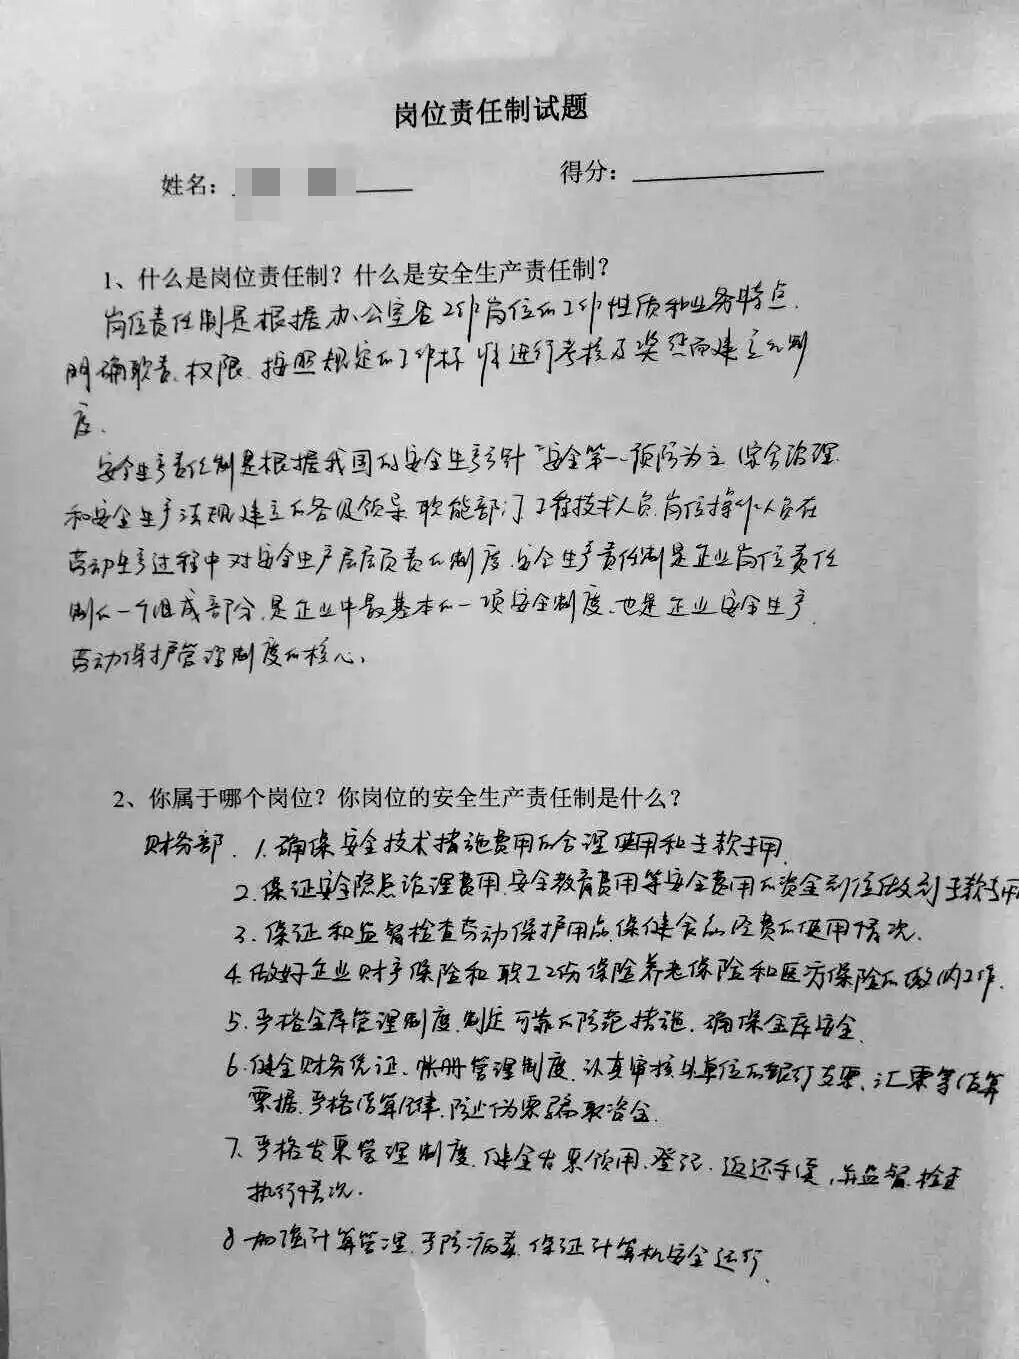 岗位责任制试题
姓名： 得分：
1、什么是岗位责任制？什么是安全生产责任制？
岗位责任制是根据办公室各工作岗位的工作性质和业务特点，
明确职责、权限、按照规定的工作标准进行考核及奖惩而建立的制
度。
安全生产责任制是根据我国的安全生产方针“安全第一、预防为主、综合治理
和安全生产法规建立的各级领导、职能部门、工程技术人员、岗位操作人员在
劳动生产过程中对安全生产层层负责的制度。安全生产责任制是企业岗位责任
制的一个组成部分，是企业中最基本的一项安全制度，也是企业安全生产、
劳动保护管理制度的核心。
2、你属于哪个岗位？你岗位的安全生产责任制是什么？
财务部、1.确保安全技术措施费用的合理使用和专款专用。
2.保证安全隐患治理费用、安全教育费用等安全费用的资金到位做到专款专用
3.保证和监督检查劳动保护用品、保健食品经费的使用情况。
4.做好企业财产保险和职工工伤保险养老保险和医疗保险的缴纳工作。
5.严格金库管理制度，制定可靠的防范措施，确保金库安全。
6.健全财务凭证、帐册管理制度，认真审核外单位的银行支票、汇票等结算
票据，严格结算纪律，防止伪票骗取资金。
7.严格发票管理制度，健全发票领用、登记、返还手续，并监督、检查
执行情况。
8.加强计算管理，予防病毒，保证计算机安全运行。